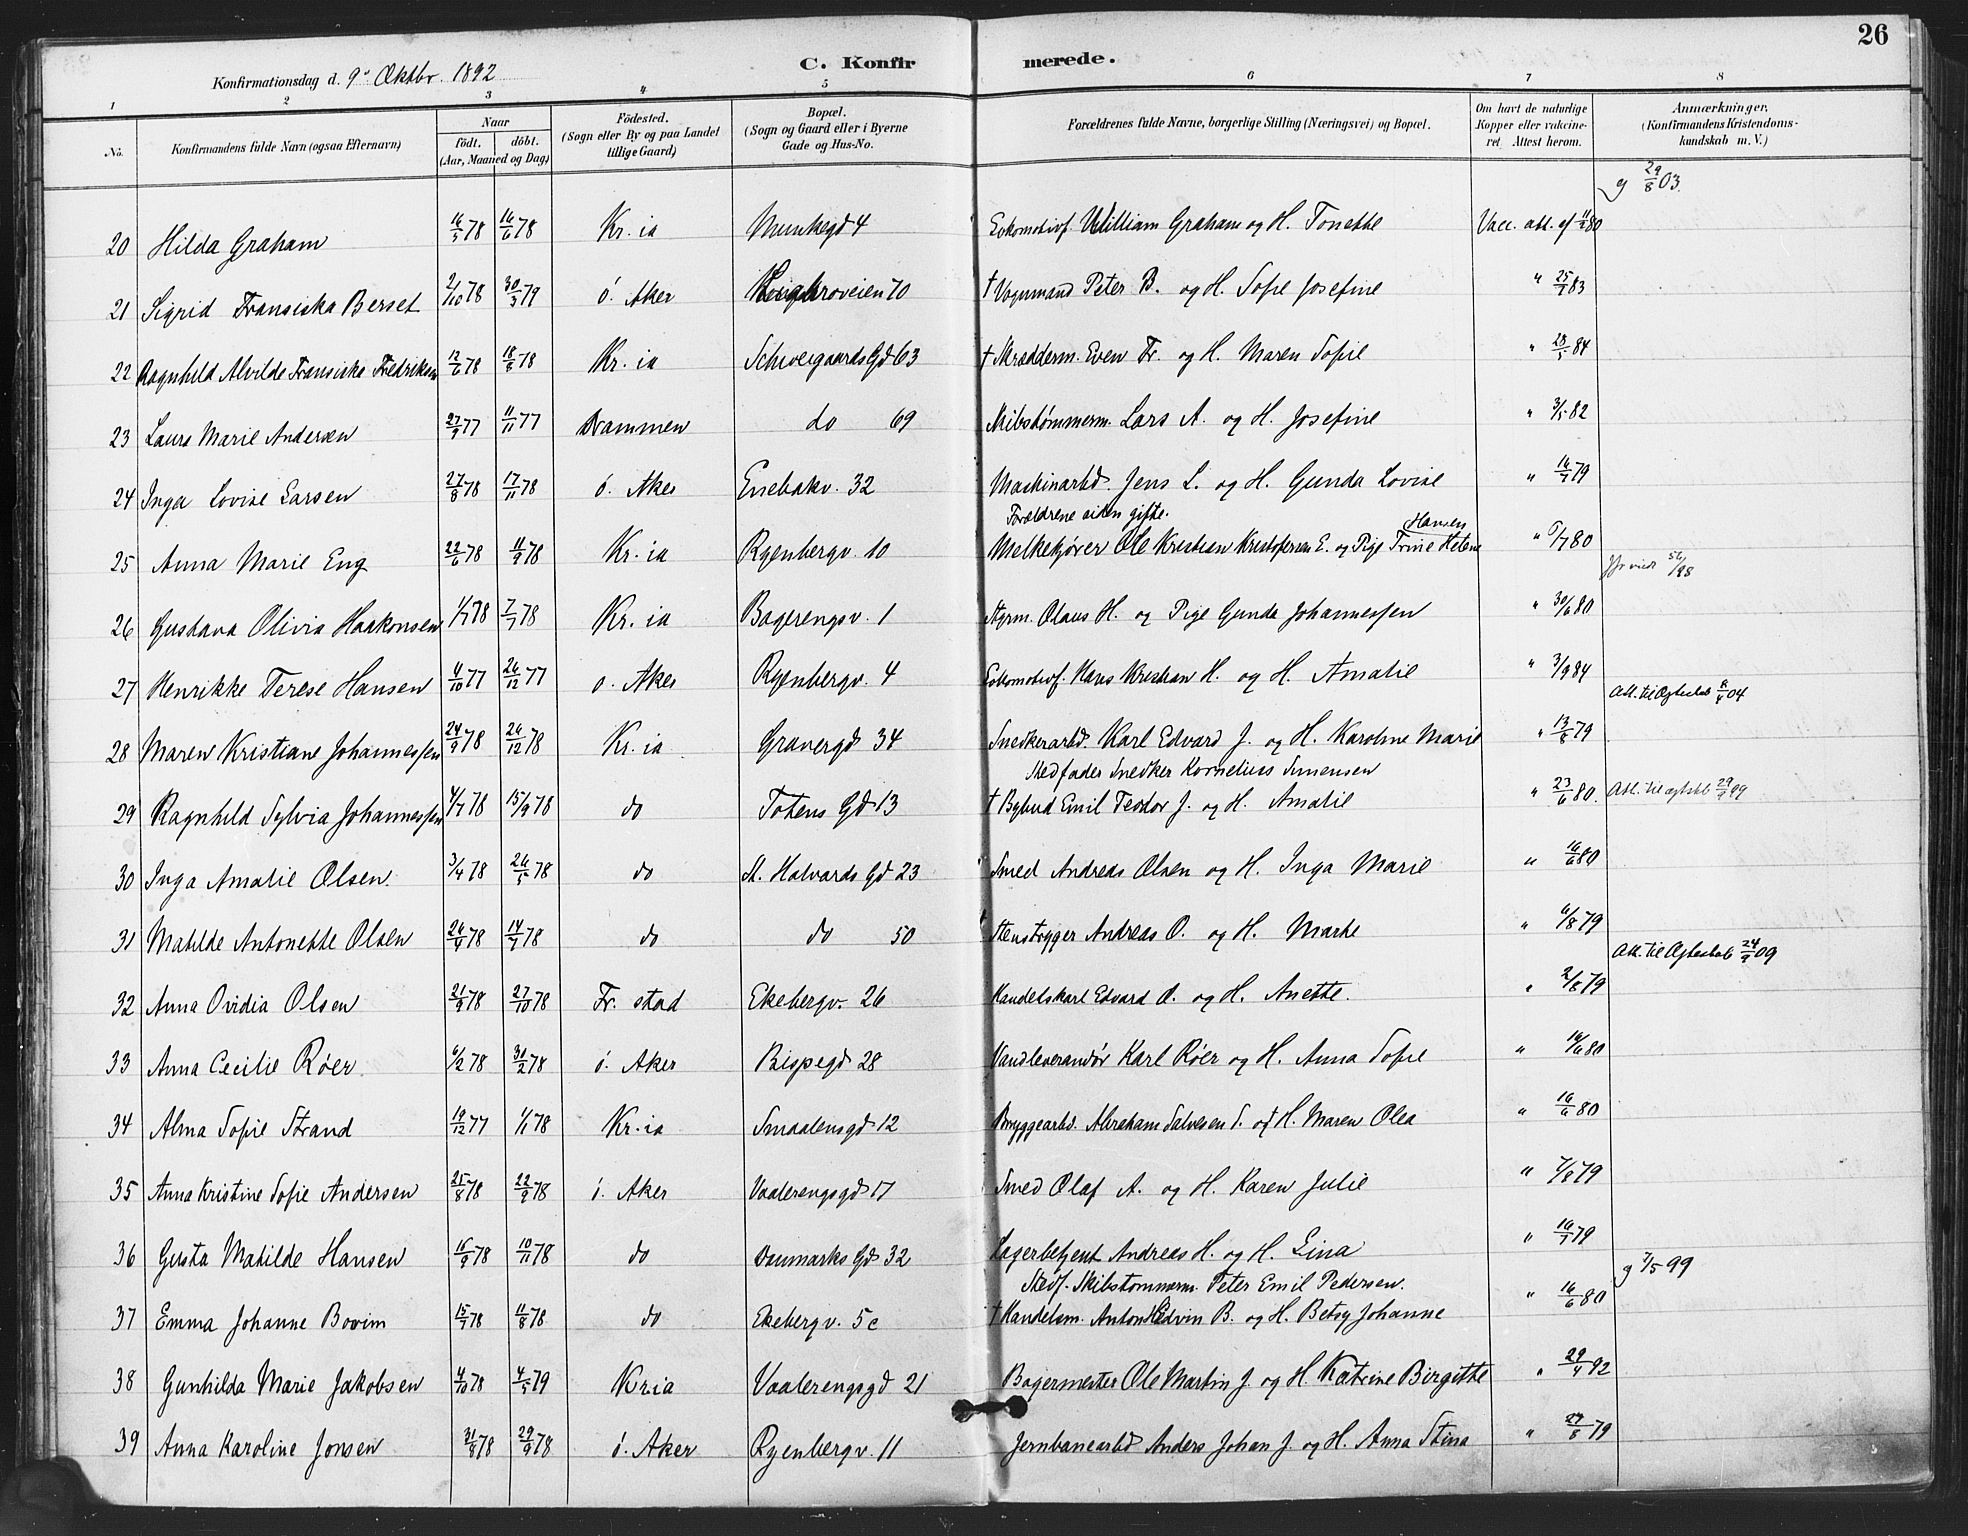 26
C. Konfirmerede.
Konfirmationsdag d. 9de Oktbr. 1892
1 2 3 4 5 6 7 8
No. Konfirmandens fulde Navn (ogsaa Efternavn) Naar født. døbt. (Aar, Maaned og Dag) Fødested. (Sogn eller By og paa Landet tillige Gaard) Bopæl. (Sogn og Gaard eller i Byerne Gade og Hus-No. Forældrenes fulde Navne, borgerlige Stilling (Næringsvei) og Bopæl. Om havt de naturlige Kopper eller vakcineret Attest herom. Anmærkninger, (Konfirmandens Kristendomskundskab m. V.)
g 29/8 03.
20 Hilda Graham 16/5 78 16/6 78 Kr.ia Munkegd 4 Lokomotivf. William Graham og H. Tonette Vacc. att. af 80
21 Sigrid Fransiska Berset 2/10 78 30/3 79 ö. Aker 70 † Vognmand Peter B. og H. Sofie Josefine " 25/7 83
22 Ragnhild Alvilde Fransiska Fredriksen 12/6 78 18/8 78 Kr.ia Schweigaards Gd 63 † Skrædderm. Even Fr. og H. Maren Sofie " 23/5 84
23 Laura Marie Andersen 27/9 77 11/11 77 Drammen do 69 Skibstömmerm. Lars A. og H. Josefine " 3/5 82
24 Inga Lovise Larsen 27/8 78 17/11 78 ö. Aker Enebakv. 32 Maskinarbd. Jens L. og H. Gunda Lovise " 16/7 79
Forældrene siden gifte. Hansen
25 Anna Marie Eng 22/6 78 11/9 78 Kr.ia Ryenbergv. 10 Melkekjører Ole Kristian Kristofersen E. og Pige Trine Helene " 6/7 80
26 Gustava Olivia Haakonsen 1/7 78 7/7 78 Kr.ia Bagerengsv. 1 Styrm. Olaus H. og Pige Gunda Johannessen " 30/6 80
27 Henrikke Terese Hansen 11/10 77 26/12 77 ö. Aker Ryenbergv. 4 Lokomotivf. Hans Kristian H. og H. Amalie " 3/9 84
Att. til Ægteskab 04
28 Maren Kristiane Johannessen 24/9 78 26/12 78 Kr.ia Gravergd 34 Snedkerarbd. Karl Edvard J. og H. Karoline Marie " 13/8 79
Stedfader Snedker Kornelius Simensen
29 Ragnhild Sylvia Johannessen 4/7 78 15/9 78 do Totens Gd 13 † Bybud Emil Teodor J. og H. Amalie " 23/6 80. Att. til ægtskb 29/9 99
30 Inga Amalie Olsen. 3/4 78 26/5 78 do St. Halvards Gd 23 Smed Andreas Olsen og H. Inga Marie " 16/6 80
31 Matilde Antonette Olsen 26/4 78 14/7 78 do do 50 Stenbrygger Andreas O. og H. Marte " 6/8 79
Att. til Ægteskab 24/9 09
32 Anna Ovidia Olsen 21/9 78 27/10 78 Fr. stad Ekebergv. 26 Handelskarl Edvard O. og H. Anette. " 2/8 79
33 Anna Cecilie Röer 6/2 78 31/2 78 ö. Aker Bispegd 28 Vandleverandör Karl Röer og H. Anna Sofie " 16/6 80
34 Alma Sofie Strand 19/12 77 1/1 78 Kr.ia Smaalensgd 12 Bryggearbd. Abraham Salvesen S. og H. Maren Olea " 16/6 80
35 Anna Kristine Sofie Andersen 25/8 78 22/9 78 ö. Aker Vaalerengsgd 17 Smed Olaf A. og H. Karen Julie " 7/8 79
36 Gusta Matilde Hansen 15/9 78 10/11 78 do Danmarks Gd 32 Lagerbetjent Andreas H. og H. Lina " 16/7 79
Stedf. Skibstømmerm. Peter Emil Pedersen. g 7/5 99
37 Emma Johanne Bovim 15/7 78 11/8 78 do Ekebergv. 5c † Handelsm. Anton Hedvin B. og H. Betsy Johanne " 16/6 80
38 Gunhilda Marie Jakobsen 4/10 78 4/5 79 Kria Vaalerengsgd 21 Bagermester Ole Martin J. og H. Katrine Birgitte " 29/4 92
39 Anna Karoline Jonsen 31/8 78 29/9 78 ö. Aker Ryenbergv. 11 Jernbanearbd Anders Johan J. og H. Anna Stina " 27/8 79